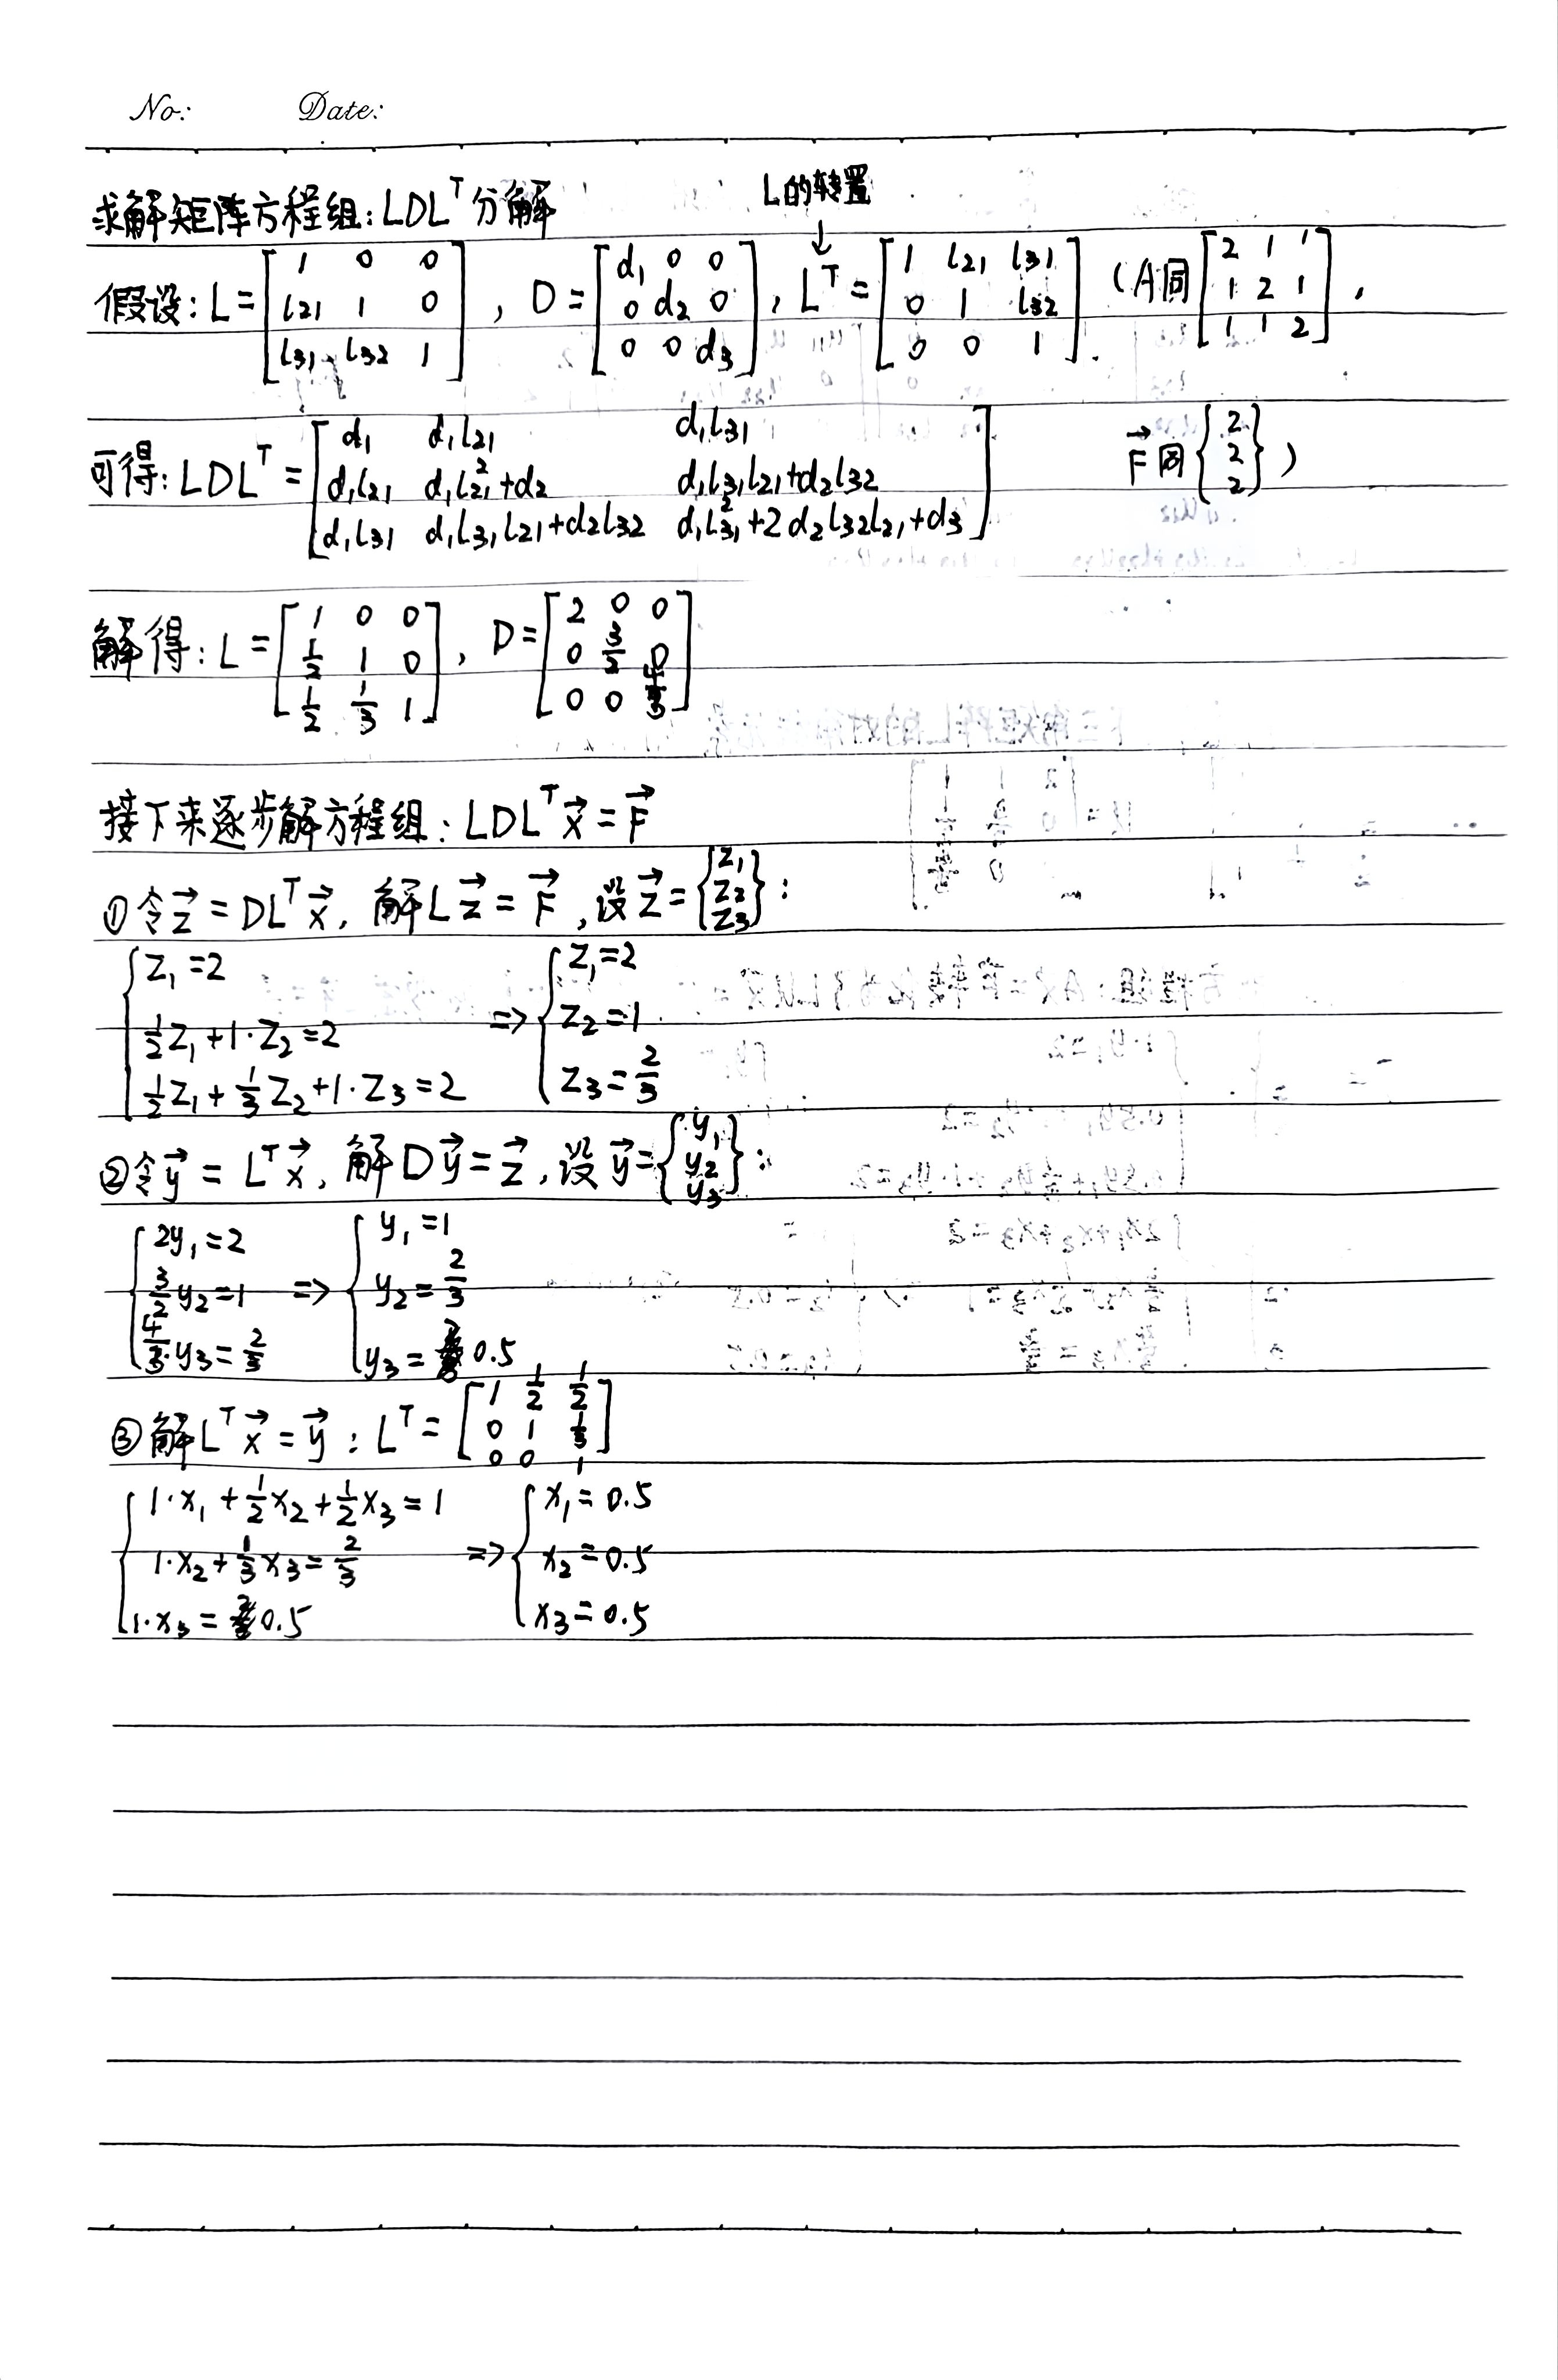 No: Date:
L的转置
↓
求解矩阵方程组:LDL^T分解
假设:L=[1 0 0; l21 1 0; l31 l32 1], D=[d1 0 0; 0 d2 0; 0 0 d3], L^T=[1 l21 l31; 0 1 l32; 0 0 1]. (A同[2 1 1; 1 2 1; 1 1 2],
可得:LDL^T=[d1 d1l21 d1l31; d1l21 d1l21^2+d2 d1l31l21+d2l32; d1l31 d1l31l21+d2l32 d1l31^2+2d2l32l21+d3] F⃗同{2 2 2})
解得:L=[1 0 0; 1/2 1 0; 1/2 1/3 1], D=[2 0 0; 0 3/2 0; 0 0 4/3]
接下来逐步解方程组:LDL^T x⃗=F⃗
①令z⃗=DL^T x⃗, 解Lz⃗=F⃗,设z⃗={z1 z2 z3}:
{z1=2 => {z1=2
1/2z1+1·z2=2 z2=1
1/2z1+1/3z2+1·z3=2 z3=2/3
②令y⃗=L^T x⃗, 解Dy⃗=z⃗,设y⃗={y1 y2 y3}:
{2y1=2 => {y1=1
3/2y2=1 y2=2/3
4/3·y3=2/3 y3=0.5
③解L^T x⃗=y⃗:L^T=[1 1/2 1/2; 0 1 1/3; 0 0 1]
{1·x1+1/2x2+1/2x3=1 => {x1=0.5
1·x2+1/3x3=2/3 x2=0.5
1·x3=0.5 x3=0.5